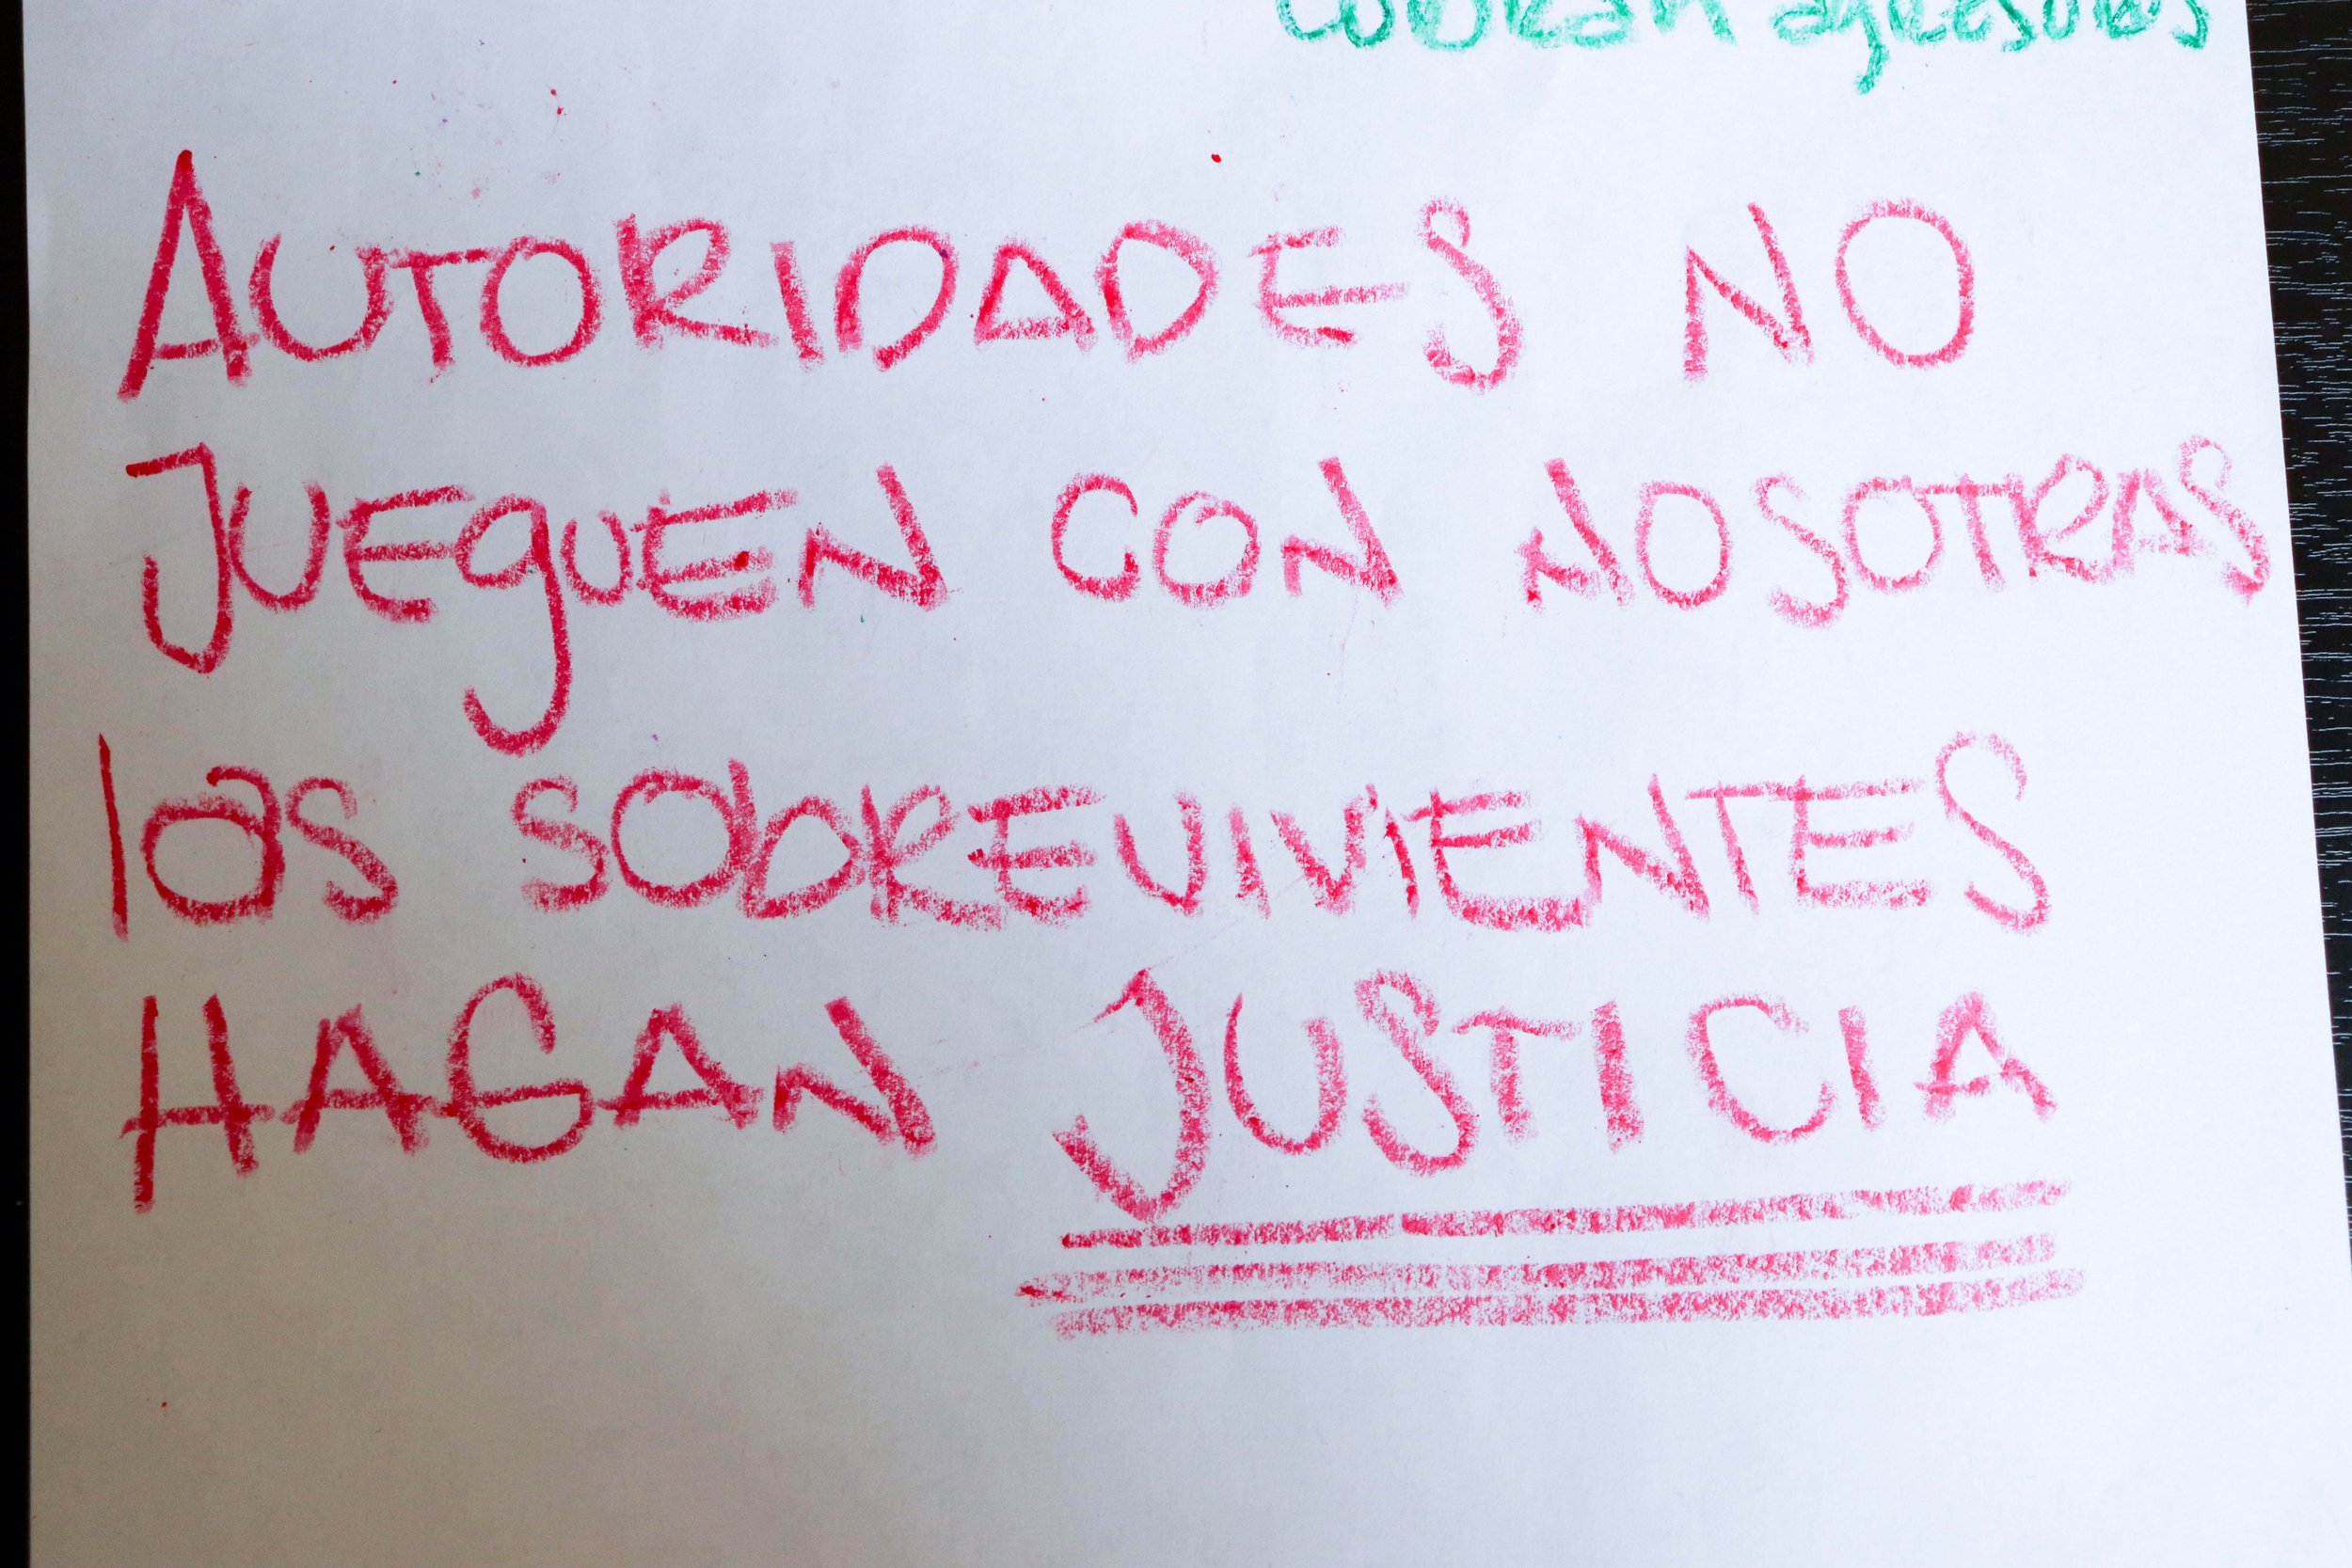 agresores
AUTORIDADES NO
JUEGUEN CON NOSOTRAS
las SObREVIVIENTES
HAGAN JUSTICIA